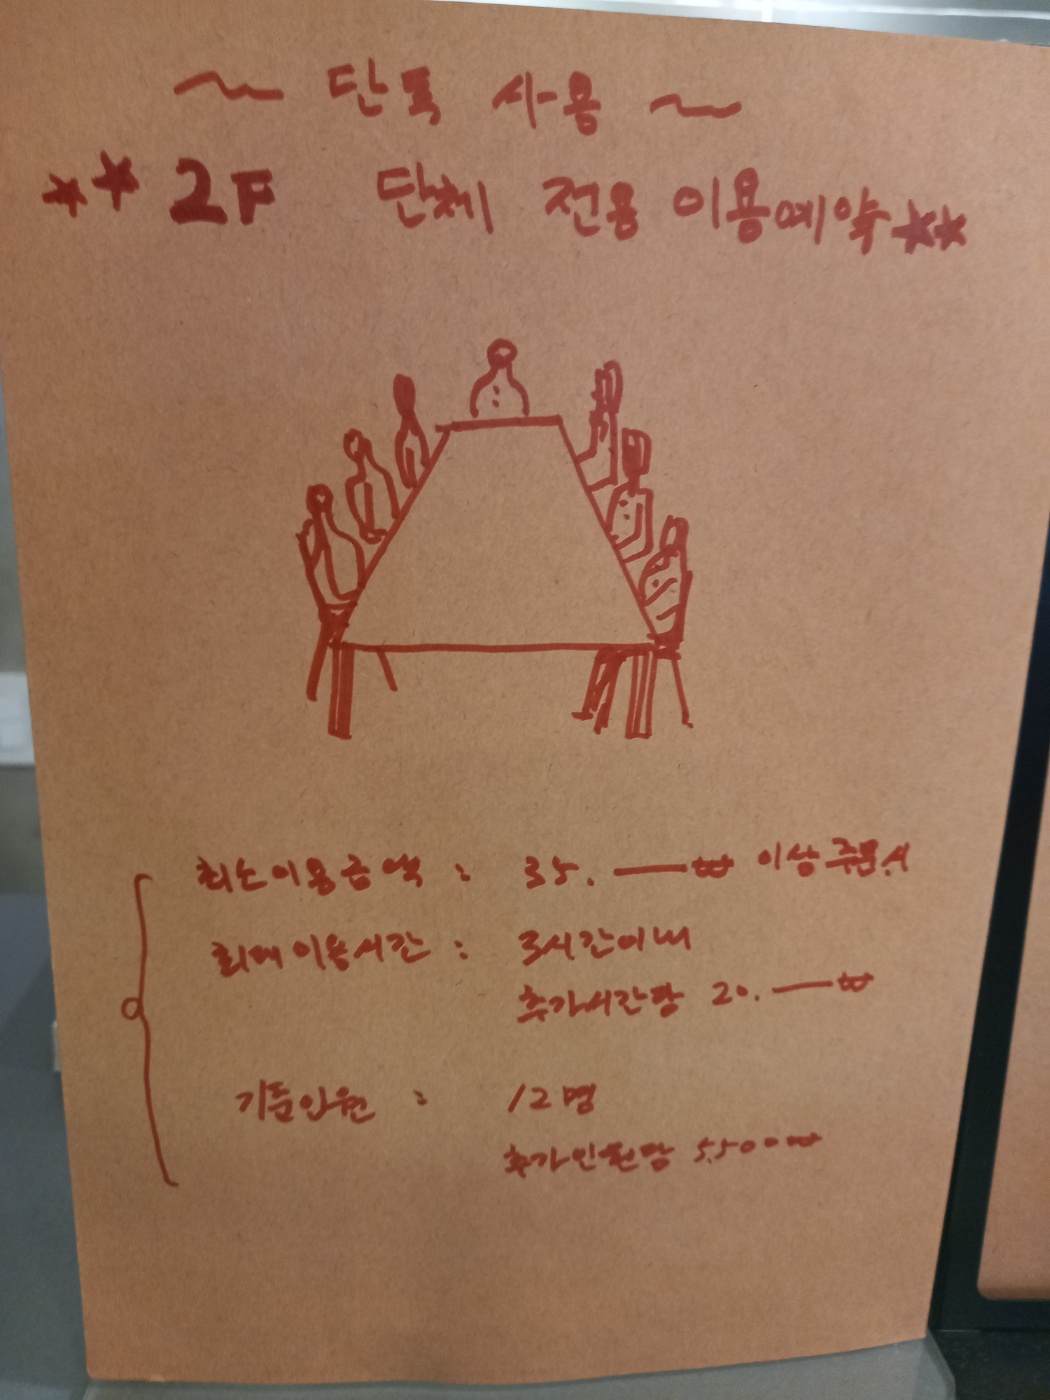 ~ 단독 사용 ~
★★ 2F 단체 전용 이용예약 ★★
최소이용금액 : 35.—₩ 이상 주문시
최대이용시간 : 3시간이내
추가시간당 20.—₩
기준인원 : 12명
추가인원당 5.500₩